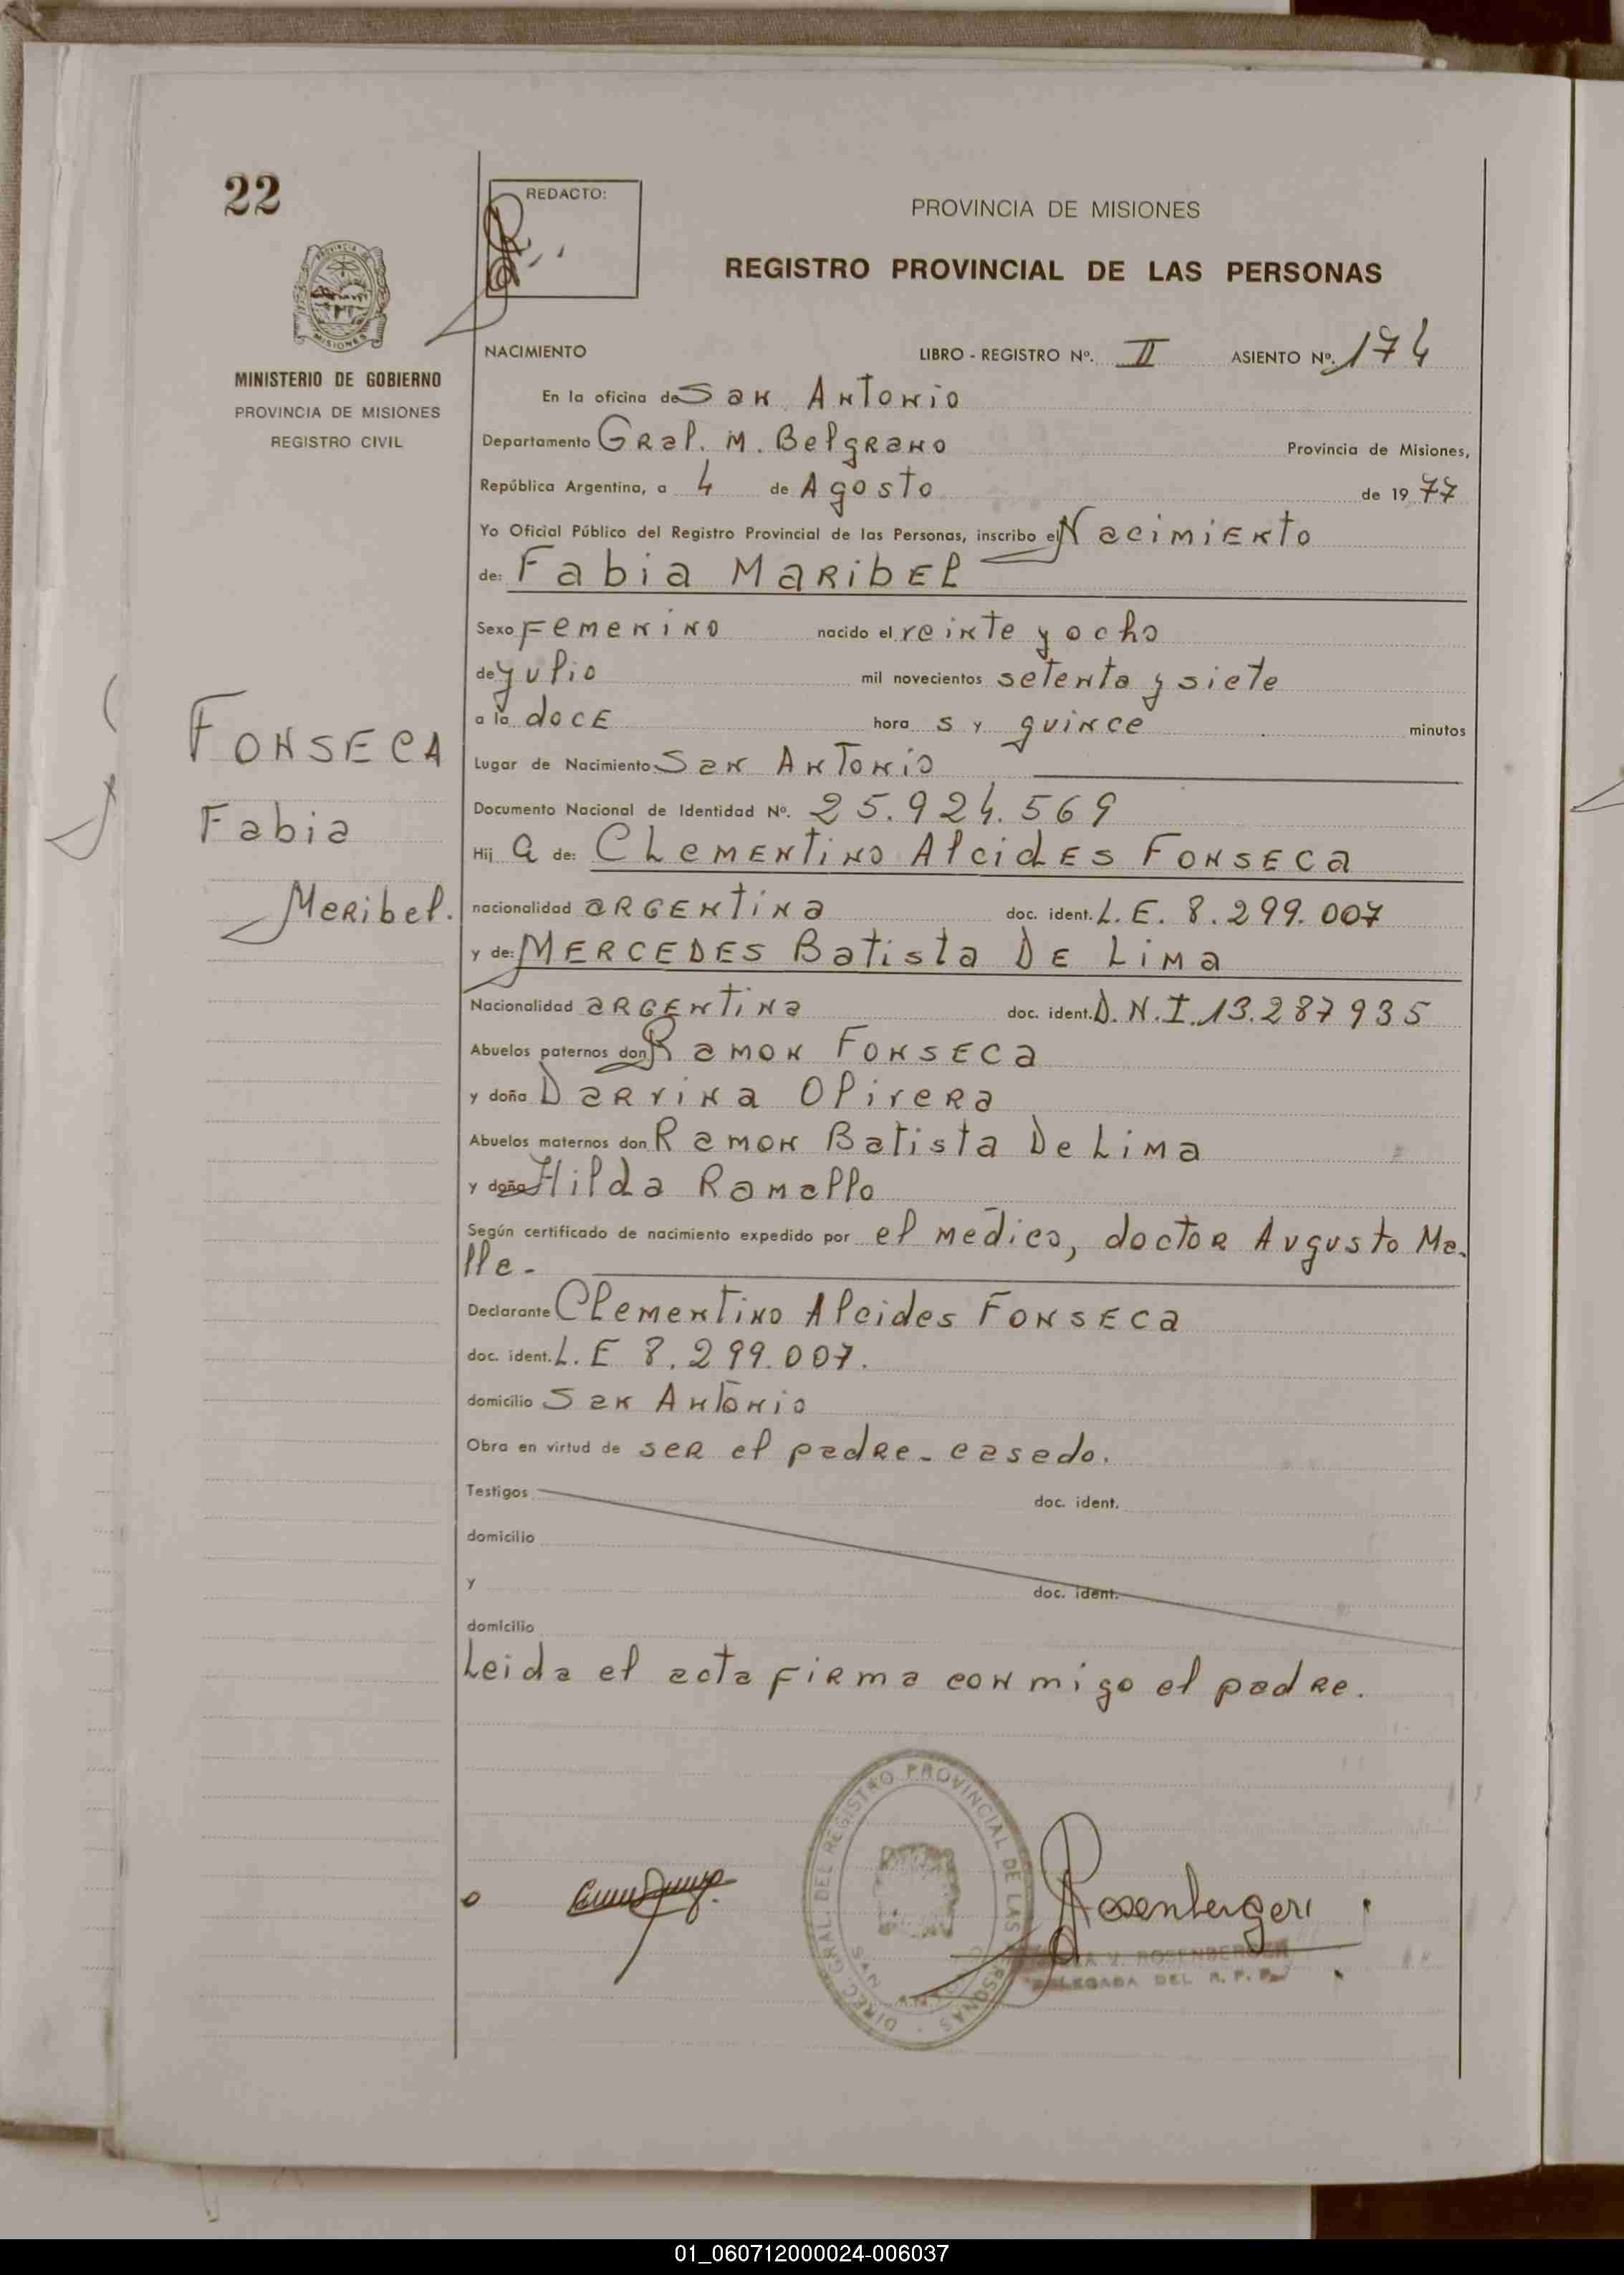 22
REDACTO:
PROVINCIA DE MISIONES
REGISTRO PROVINCIAL DE LAS PERSONAS
MINISTERIO DE GOBIERNO
PROVINCIA DE MISIONES
REGISTRO CIVIL
NACIMIENTO LIBRO - REGISTRO Nº. II ASIENTO Nº. 174
En la oficina de San Antonio
Departamento Gral. M. Belgrano Provincia de Misiones,
República Argentina, a 4 de Agosto de 1977
Yo Oficial Público del Registro Provincial de las Personas, inscribo el Nacimiento
de: Fabia Maribel
Sexo Femenino nacido el veinte y ocho
de yulio mil novecientos setenta y siete
a la doce hora s y quince minutos
Lugar de Nacimiento San Antonio
Documento Nacional de Identidad Nº. 25.924.569
Hij a de: Clementino Alcides Fonseca
nacionalidad argentina doc. ident. L.E. 8.299.007
y de: Mercedes Batista De Lima
Nacionalidad argentina doc. ident. D.N.I. 13.287935
Abuelos paternos don Ramon Fonseca
y doña Darvina Olivera
Abuelos maternos don Ramon Batista De Lima
y doña Hilda Ramallo
Según certificado de nacimiento expedido por el medico, doctor Augusto Ma-
lle-
Declarante Clementino Alcides Fonseca
doc. ident. L.E 8.299.007.
domicilio San Antonio
Obra en virtud de ser el padre- casado.
Testigos doc. ident.
domicilio
y doc. ident.
domicilio
Leida el acta firma conmigo el padre.
FONSECA
Fabia
Maribel.
DIREC. GRAL. DEL REGISTRO PROVINCIAL DE LAS PERSONAS
SAN
Rosenberger
A V. ROSENBERGER
DELEGADA DEL R. P. P.
01_060712000024-006037